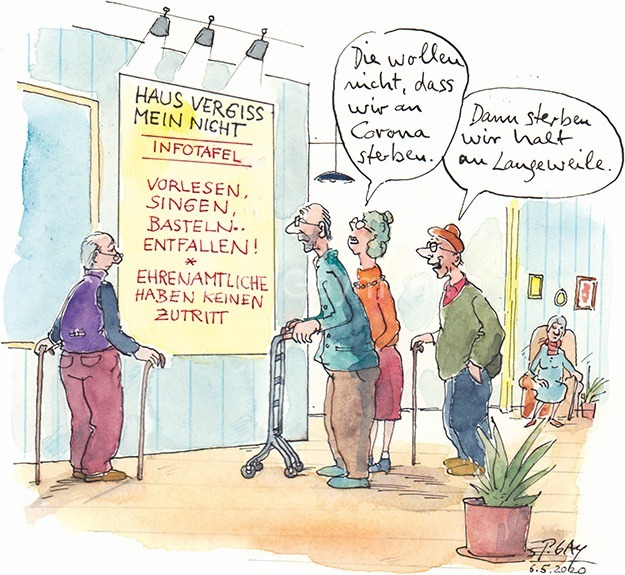 HAUS VERGISS
MEIN NICHT
INFOTAFEL
VORLESEN,
SINGEN,
BASTELN..
ENTFALLEN!
*
EHRENAMTLICHE
HABEN KEINEN
ZUTRITT
Die wollen
nicht, dass
wir an
Corona
sterben.
Dann sterben
wir halt
an Langeweile.
P. GAY
6.5.2020